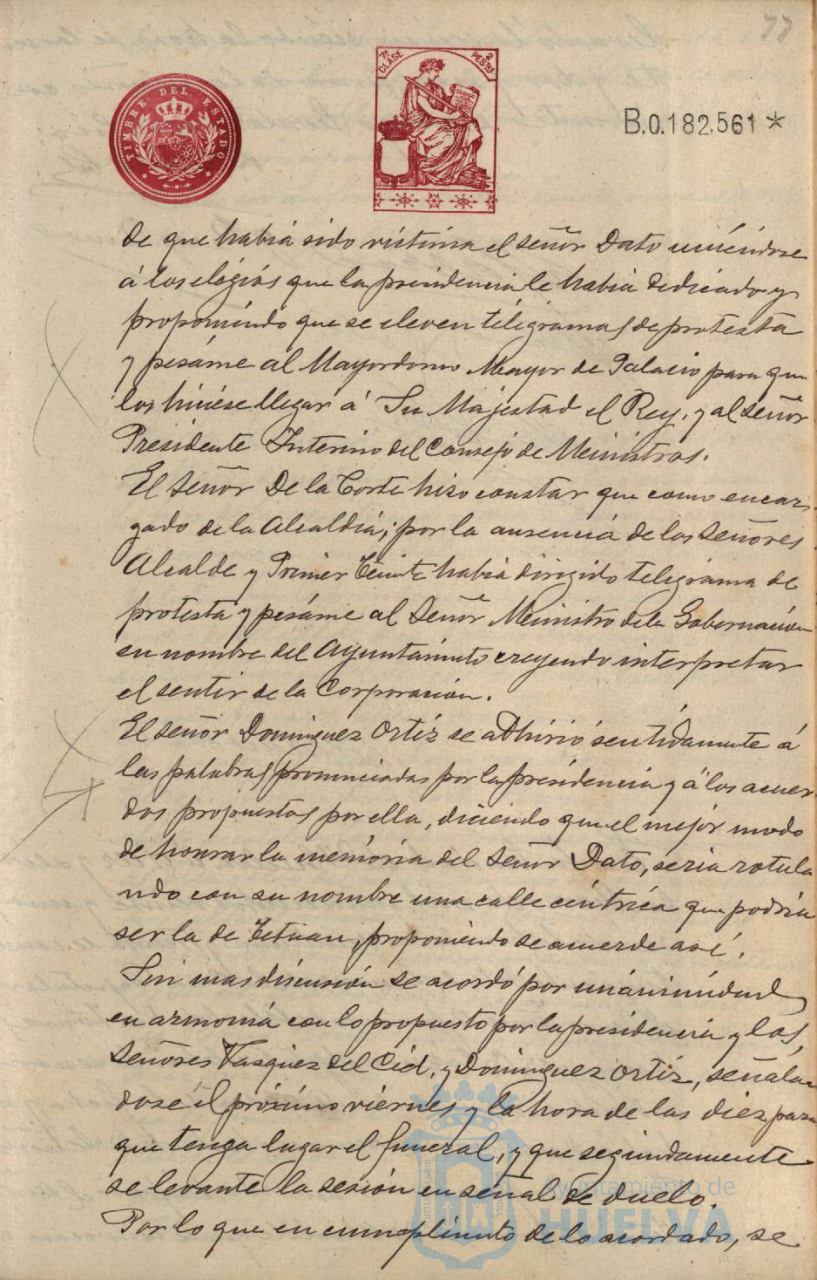 77
TIMBRE DEL ESTADO
7ª CLASE 2 PESTAS
B.0.182,561*
de que habiá sido victima el señor Dato uniéndose
á los elogios que la presidencia le habia dedicado y
proponiéndo que se eleven telegramas de protesta
y pesáme al Mayordomo Mayor de Palacio para que
los hiciése llegar á Su Majestad el Rey, y al señor
Presidente Interino del Consejo de Ministros.
El señor De la Corte hizo constar que como encar-
gado de la Alcaldiá, por la ausenciá de los señores
Alcalde y Primer Teniente habiá dirigido telegrama de
protesta y pesáme al Señor Ministro de la Gobernación
en nombre del Ayuntamiento creyendo interpretar
el sentir de la Corporación.
El señor Dominguez Ortiz se adhirió sentidamente á
las palabras pronunciadas por la presidencia y á los acuer-
dos propuestos por ella, diciendo que el mejor modo
de honrar la memoria del Señor Dato, seria rotula
ndo con su nombre una calle céntrica que podria
ser la de Tetuan, proponiendo se acuerde así.
Sin mas discusión se acordó por unánimidad
en armoniá con lo propuesto por la presidencia y los
Señores Vazquez del Cid, y Dominguez Ortiz, señalan
dose el próximo viernes y la hora de las diez para
que tenga lugar el funeral, y que seguidamente
se levante la sesión en señal de duelo.
Por lo que en cumplimiento de lo acordado, se
Ayuntamiento de
HUELVA